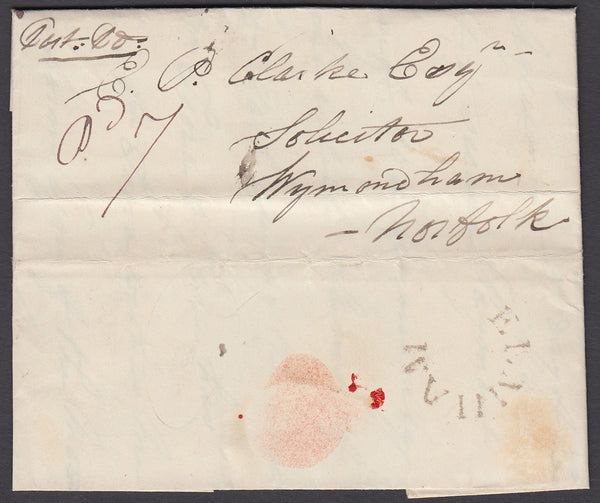 Post. Pd.
E. P. Clarke Esqr
Pd 7
Solicitor
Wymondham
Norfolk